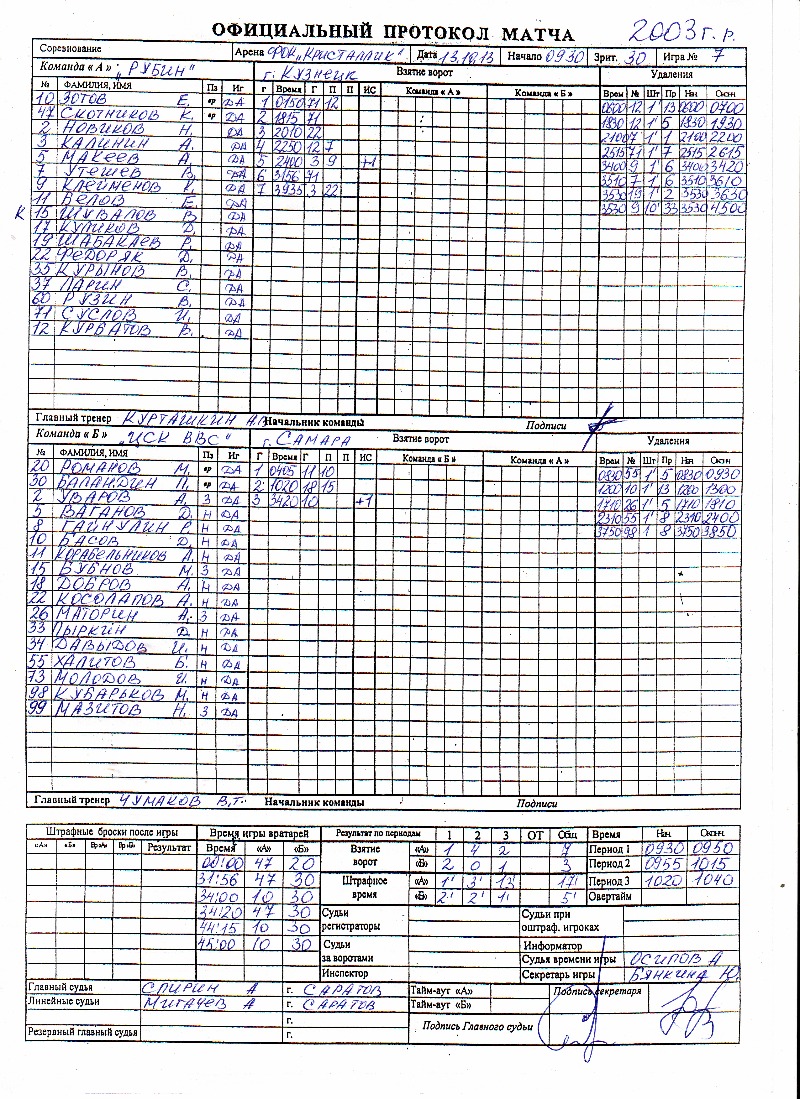 ОФИЦИАЛЬНЫЙ ПРОТОКОЛ МАТЧА 2003 г. р.
Соревнование Арена ФОК „Кристаллик" Дата 13.10.13 Начало 0930 Зрит. 30 Игра № 7
Команда « А » : „РУБИН" г. КУЗНЕЦК Взятие ворот Удаления
№ ФАМИЛИЯ, ИМЯ Пз Иг Г Время Г П П ИС Команда « А » Команда « Б » Врем № Шт Пр Нач Окон.
10 ЗОТОВ Е. вр ДА 1 0150 71 12 0600 12 1' 13 0600 0700
47 СКОТНИКОВ К. вр ДА 2 1815 71 1830 12 1' 5 1830 1930
2 НОВИКОВ Н. ДА 3 2010 22 2100 7 1' 1 2100 2200
3 КАЛИНИН А. ДА 4 2250 12 7 2515 71 1' 7 2515 2615
5 МАКЕЕВ А. ДА 5 2400 3 9 +1 3400 9 1' 6 3400 3420
7 УТЕШЕВ В. ДА 6 3156 71 3510 7 1' 6 3510 3610
9 КЛЕЙМЕНОВ К. ДА 7 3935 3 22 3530 19 1' 2 3530 3630
11 БЕЛОВ Е. ДА 3530 9 10' 33 3530 4500
К 15 ШУВАЛОВ В. ДА
17 КУЛИКОВ Д. ДА
19 ШАБАКАЕВ Р. ДА
22 ФЕДОРЯК Д. ДА
35 КУРЫНОВ В. ДА
37 ЛАРИН С. ДА
60 РУЗИН В. ДА
71 СУСЛОВ И. ДА
12 КУРБАТОВ В. ДА
Главный тренер КУРТАШКИН А.А. Начальник команды Подписи
Команда « Б » „ЦСК ВВС" г. САМАРА Взятие ворот Удаления
№ ФАМИЛИЯ, ИМЯ Пз Иг Г Время Г П П ИС Команда « Б » Команда « А » Врем № Шт Пр Нач Окон.
20 РОМАНОВ М. вр ДА 1 0405 11 10 0830 55 1' 5 0830 0930
30 БАЛАНДИН П. вр ДА 2 1020 18 15 1200 10 1' 13 1200 1300
2 УВАРОВ А. З ДА 3 3420 10 +1 1710 26 1' 5 1710 1810
5 ВАГАНОВ Д. Н ДА 2310 55 1' 8 2310 2400
8 ГАЙНУЛИН Р. Н ДА 3750 98 1 8 3750 3850
10 БАСОВ Д. Н ДА
11 КОРАБЕЛЬНИКОВ А. Н ДА
15 БУБНОВ М. З ДА
18 ДОБРОВ А. Н ДА
22 КОСОЛАПОВ А. Н ДА
26 МАТОРИН А. З ДА
33 ПЫРКИН Д. Н ДА
34 ДАВЫДОВ И. Н ДА
55 ХАЛИТОВ Б. Н ДА
73 МОЛОДОВ И. Н ДА
98 КУБАРЬКОВ М. Н ДА
99 МАЗИТОВ Н. З ДА
Главный тренер ЧУМАКОВ В,Т. Начальник команды Подписи
Штрафные броски после игры Время игры вратарей Результат по периодам 1 2 3 ОТ Общ Время Нач. Оконч.
«А» «Б» Вр«А» Вр«Б» Результат Время «А» «Б» Взятие ворот «А» 1 4 2 7 Период 1 0930 0950
00:00 47 20 «Б» 2 0 1 3 Период 2 0955 1015
31:56 47 30 Штрафное время «А» 1' 3' 13' 17' Период 3 1020 1040
34:00 10 30 «Б» 2' 2' 1' 5' Овертайм
34:20 47 30 Судьи регистраторы Судьи при оштраф. игроках
44:15 10 30
45:00 10 30 Судьи за воротами Информатор
Судья времени игры ОСИПОВ А
Инспектор Секретарь игры БЯНКИНА Ю.
Главный судья СПИРИН А г. САРАТОВ Тайм-аут «А» Подпись секретаря
Линейные судьи МИГАЧЕВ А г. САРАТОВ Тайм-аут «Б»
г. Подпись Главного судьи
Резервный главный судья г.